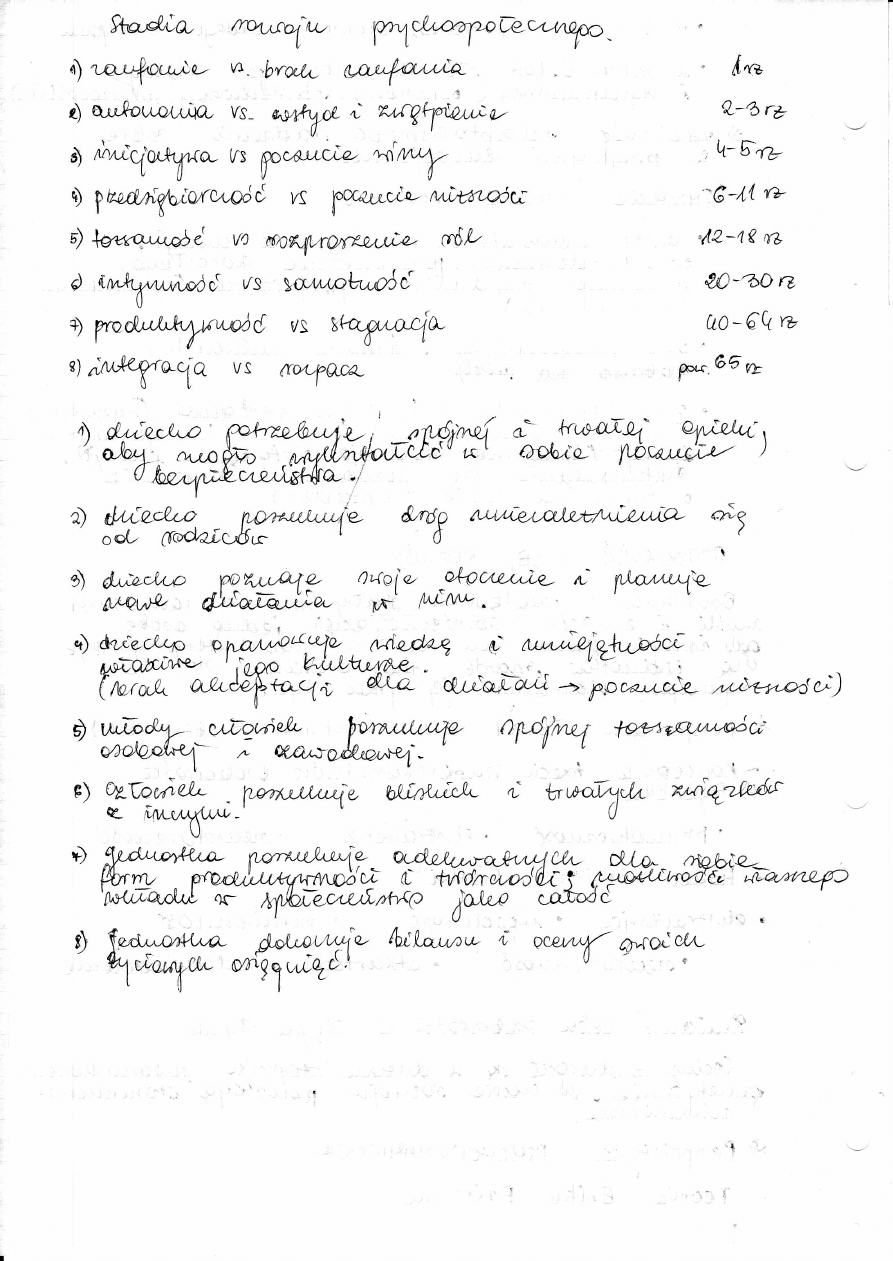 Stadia rozwoju psychospołecznego.
1) zaufanie vs. brak zaufania 1 rż
2) autonomia vs. wstyd i zwątpienie 2-3 rż
3) inicjatywa vs poczucie winy 4-5 rż
4) przedsiębiorczość vs poczucie niższości 6-11 rż
5) tożsamość vs rozproszenie ról 12-18 rż
6) intymność vs samotność 20-30 rż
7) produktywność vs stagnacja 40-64 rż
8) integracja vs rozpacz pow. 65 rż
1) dziecko potrzebuje spójnej i trwałej opieki,
aby mogło wykształcić w sobie poczucie
bezpieczeństwa.
2) dziecko poszukuje dróg uniezależnienia się
od rodziców
3) dziecko poznaje swoje otoczenie i planuje
nowe działania w nim.
4) dziecko opanowuje wiedzę i umiejętności
właściwe jego kulturze.
(brak akceptacji dla działań → poczucie niższości)
5) młody człowiek poszukuje spójnej tożsamości
osobowej i zawodowej.
6) Człowiek poszukuje bliskich i trwałych związków
z innymi.
7) Jednostka poszukuje adekwatnych dla siebie
form produktywności i twórczości; możliwości własnego
wkładu w społeczeństwo jako całość
8) Jednostka dokonuje bilansu i oceny swoich
życiowych osiągnięć.